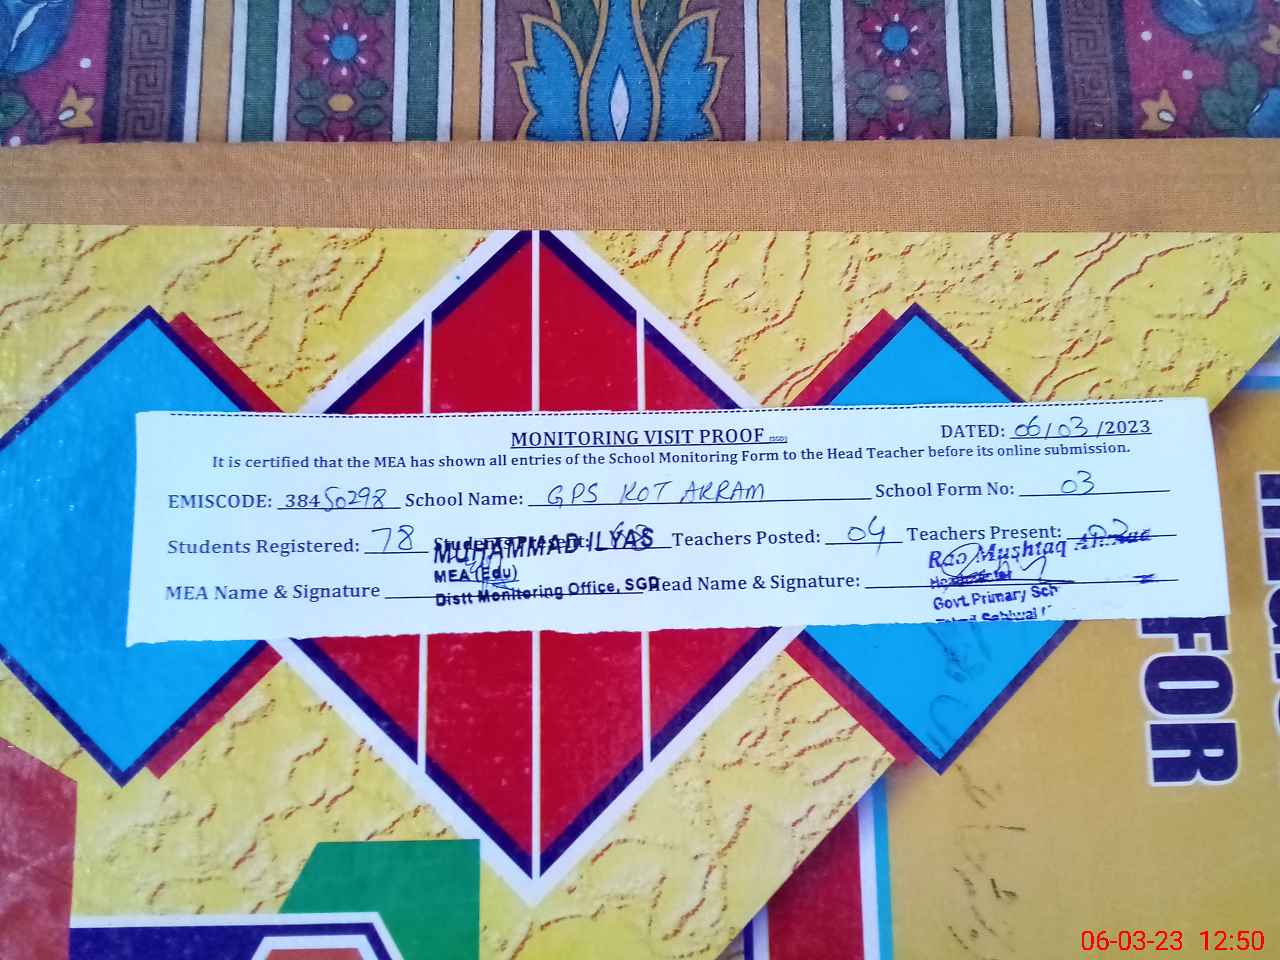 MONITORING VISIT PROOF
DATED: 06/03/2023
It is certified that the MEA has shown all entries of the School Monitoring Form to the Head Teacher before its online submission.
EMISCODE: 38450298 School Name: GPS KOT AKRAM School Form No: 03
Students Registered: 78 Students Present: Teachers Posted: 04 Teachers Present:
MUHAMMAD ILYAS
MEA (Edu)
Distt Monitoring Office, SGD
MEA Name & Signature Head Name & Signature:
Rao Mushtaq
Govt. Primary Sch
FOR
06-03-23 12:50